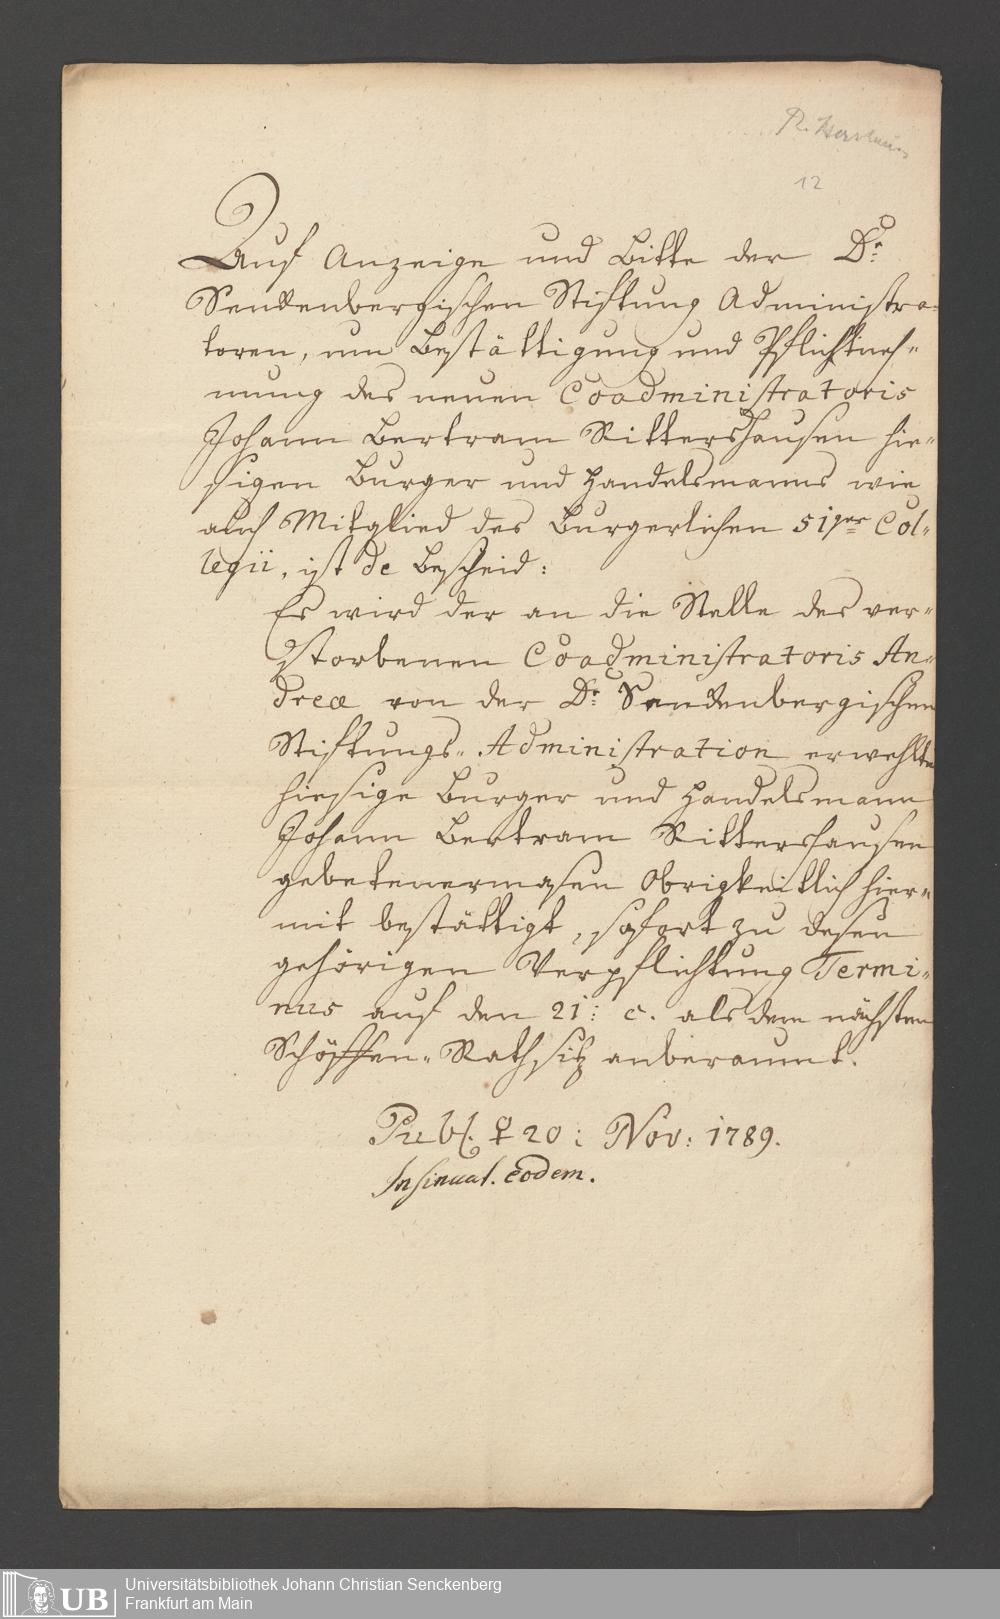 12
Auf Anzeige und Bitte der Dr:
Senckenbergischen Stiftung Administra-
toren, um Bestättigung und Pflichtneh-
mung des neuen Coadministratoris
Johann Bertram Rittershausen hie-
sigen Burger und Handelsmanns wie
auch Mitglied des Burgerlichen 51ger Col-
legii, ist de Bescheid:
Es wird der an die Stelle des ver-
storbenen Coadministratoris An-
dreæ von der Dr: Senckenbergischen
Stiftungs-Administration erwehlte
hiesige Burger und Handelsmann
Johann Bertram Rittershausen
gebetenermasen Obrigkeitlich hier-
mit bestättigt, sofort zu desen
gehörigen Verpflichtung Termi-
nus auf den 21: c. als dem nächsten
Schöffen-Rathsitz anberaumt.
Publ. ♀ 20: Nov: 1789.
Insinuat. eodem.
UB
Universitätsbibliothek Johann Christian Senckenberg
Frankfurt am Main